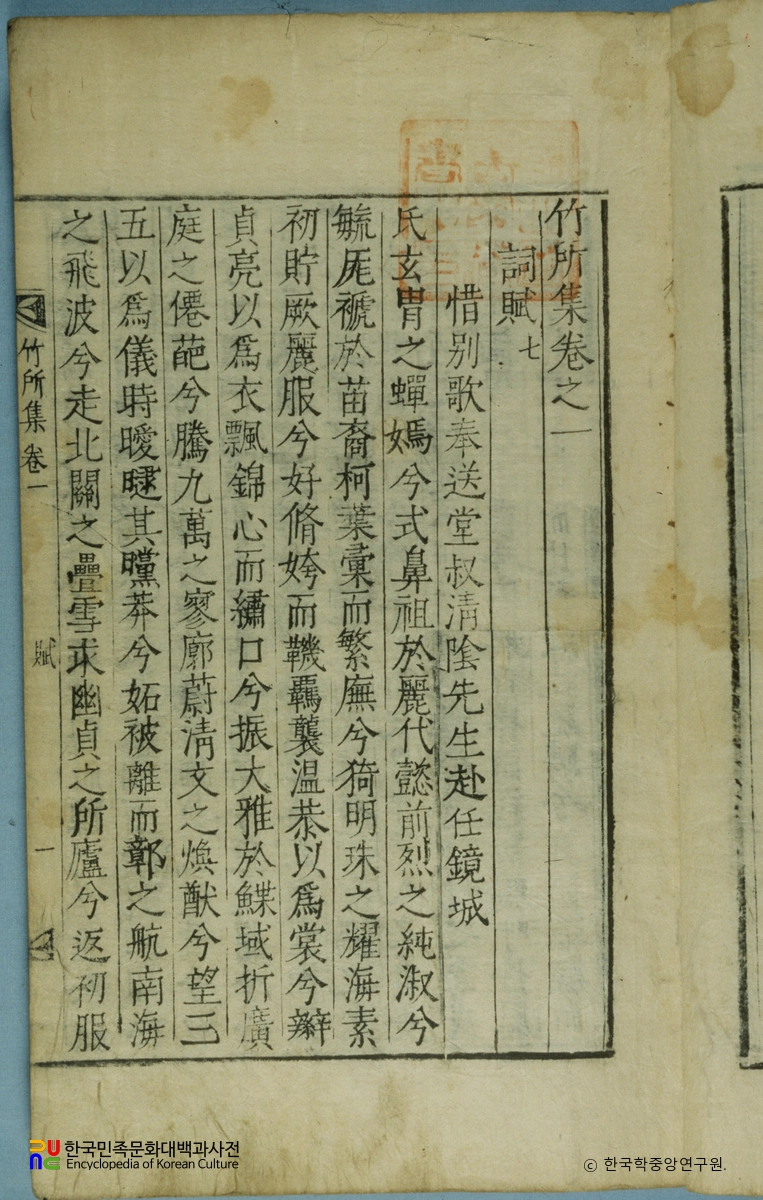 竹所集卷之一
詞賦七
惜别歌奉送堂叔清陰先生赴任鏡城
氏玄冑之蟬嫣兮式鼻祖於麗代懿前烈之純淑兮
毓厖褫於苗裔柯葉彙而繁廡兮猗明珠之耀海素
初貯厥麗服兮好脩姱而鞿羈襲温恭以爲裳兮辮
貞亮以爲衣飄錦心而繡口兮振大雅於鰈域折廣
庭之僊葩兮騰九萬之寥廓蔚清文之煥猷兮望三
五以爲儀時曖曃其曭莽兮妬被離而鄣之航南海
之飛波兮走北關之疊雪求幽貞之所廬兮返初服
竹所集卷一
賦
一
한국민족문화대백과사전
Encyclopedia of Korean Culture
ⓒ 한국학중앙연구원.